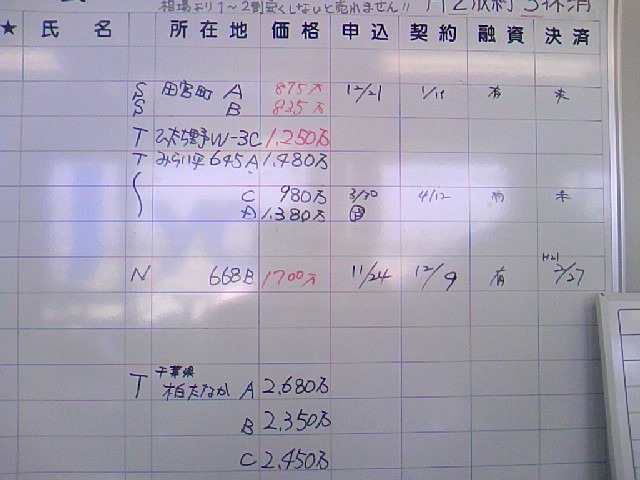 相場より1〜2割安くしないと売れません!!
★ 氏名 所在地 価格 申込 契約 融資 決済
S 田宮町 A 875万 12/21 1/18 有 未
S B 835万
T ひたち野W-3C 1.250万
T みらい平645A 1.480万
C 980万 3/30 4/12 有 未
D 1.380万
N 668B 1700万 11/24 12/9 有 H21 2/27
千葉県
T 柏たなか A 2.680万
B 2.350万
C 2.450万